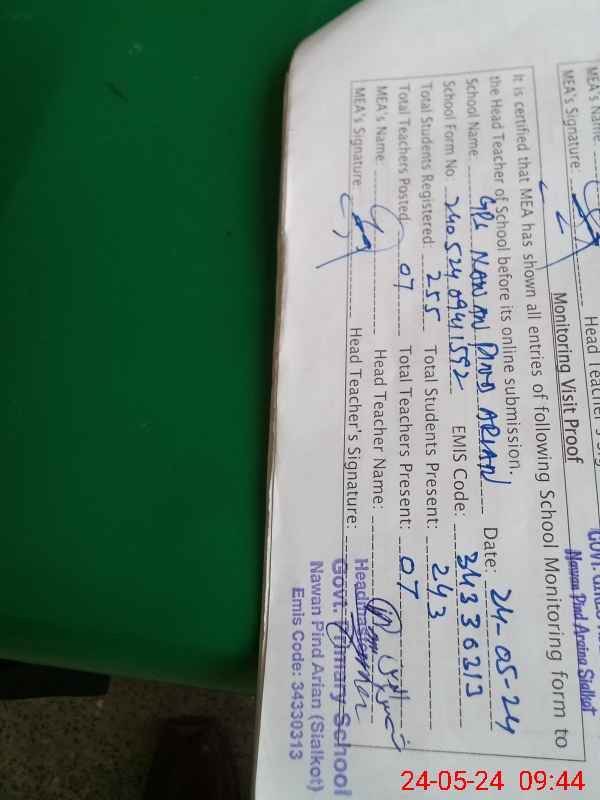 MEA's Name
MEA's Signature: Head Teacher's Sig
Nawan Pind Araina Sialkot
Monitoring Visit Proof
It is certified that MEA has shown all entries of following School Monitoring form to
the Head Teacher of School before its online submission.
School Name: GPS NAWAN PIND ARIAN Date: 24-05-24
School Form No: EMIS Code: 34330313
Total Students Registered: 255 Total Students Present: 243
Total Teachers Posted: 07 Total Teachers Present: 07
MEA's Name: Head Teacher Name:
MEA's Signature: Head Teacher's Signature:
Headmaster
Govt. Primary School
Nawan Pind Arian (Sialkot)
Emis Code: 34330313
24-05-24 09:44